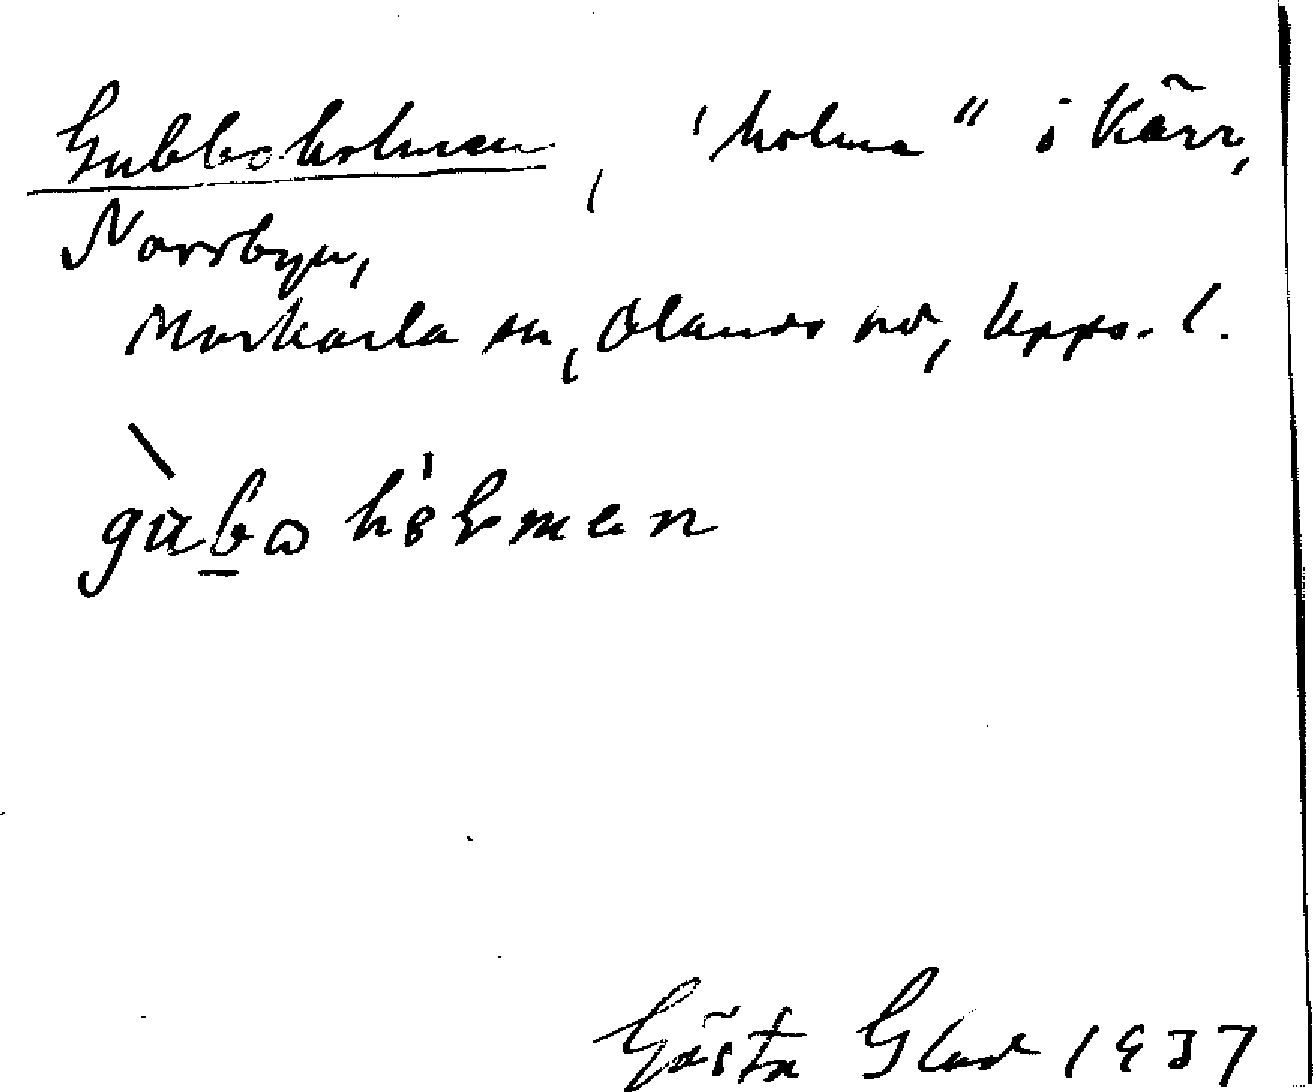 Gubboholmen, "holme" i Kärr,
Norrbyn,
Morkarla sn, Olands hd, Upps. l.
gùbo hólmen
Gösta Glad 1937